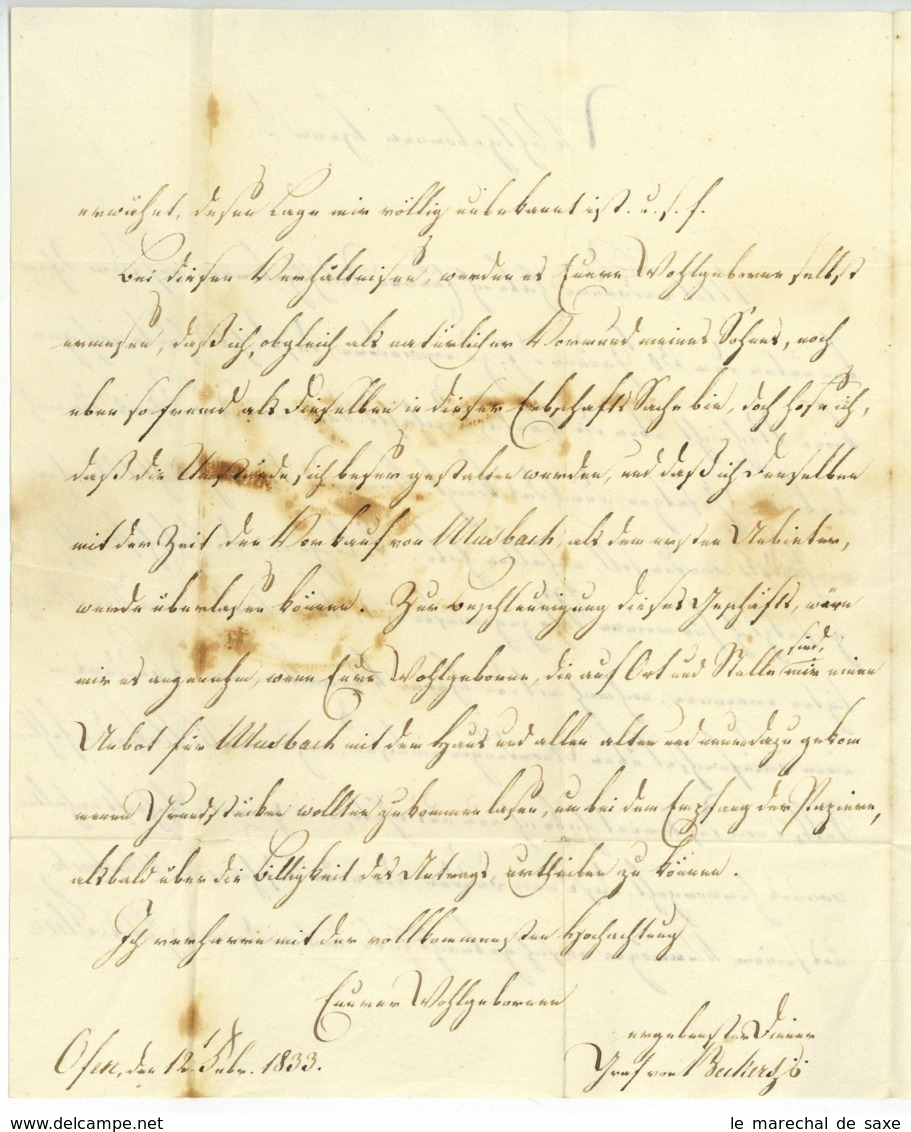 erwähnt, deßen Lage mir völlig unbekannt ist. u. s. f.
Bei diesen Verhältnißen, werden es Euere Wohlgeborne selbst
ermeßen, daß ich, obgleich als natürlicher Vormund meines Sohnes, noch
eben so fremd als Dieselben in dieser Erbschafts Sache bin, doch hoffe ich,
daß die Umstände, sich beßer gestalten werden, und daß ich Denselben
mit der Zeit den Vorkauf von Musbach, als dem ersten Anbieter,
werde überlaßen können. Zur Beschleunigung dieses Geschäfts, wäre
mir es angenehm, wenn Eure Wohlgeborne, die auf Ort und Stelle sind, mir einen
Anbot für Musbach mit dem Haus und allen alten und neu dazu gekom
menen Grundstücken wollten zukommen laßen, um bei dem Empfang der Papiere,
alsbald über die Billigkeit des Antrags, urtheilen zu können.
Ich verharre mit der vollkommensten Hochachtung
Euerer Wohlgebornen
ergebenster Diener
Ofen, den 12. Febr. 1833.
Graf von Beckers
le marechal de saxe